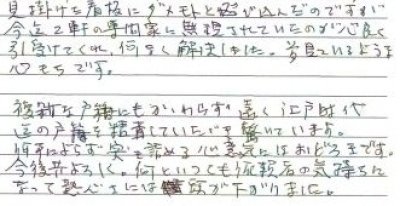 見掛けた看板にダメモトと飛び込んだのですが
今迄2軒の専門家に無視されていたのが心良く
引き受けてくれ、何なく解決しました。夢見ているような
心もちです。
複雑な戸籍にもかかわらず遠く江戸時代
迄の戸籍を精査していたゞき驚いています。
何事によらず実を詰める心意気にはおどろきです。
今後共よろしく。何といっても依頼者の気持ちに
なって熱心さには頭が下がりました。